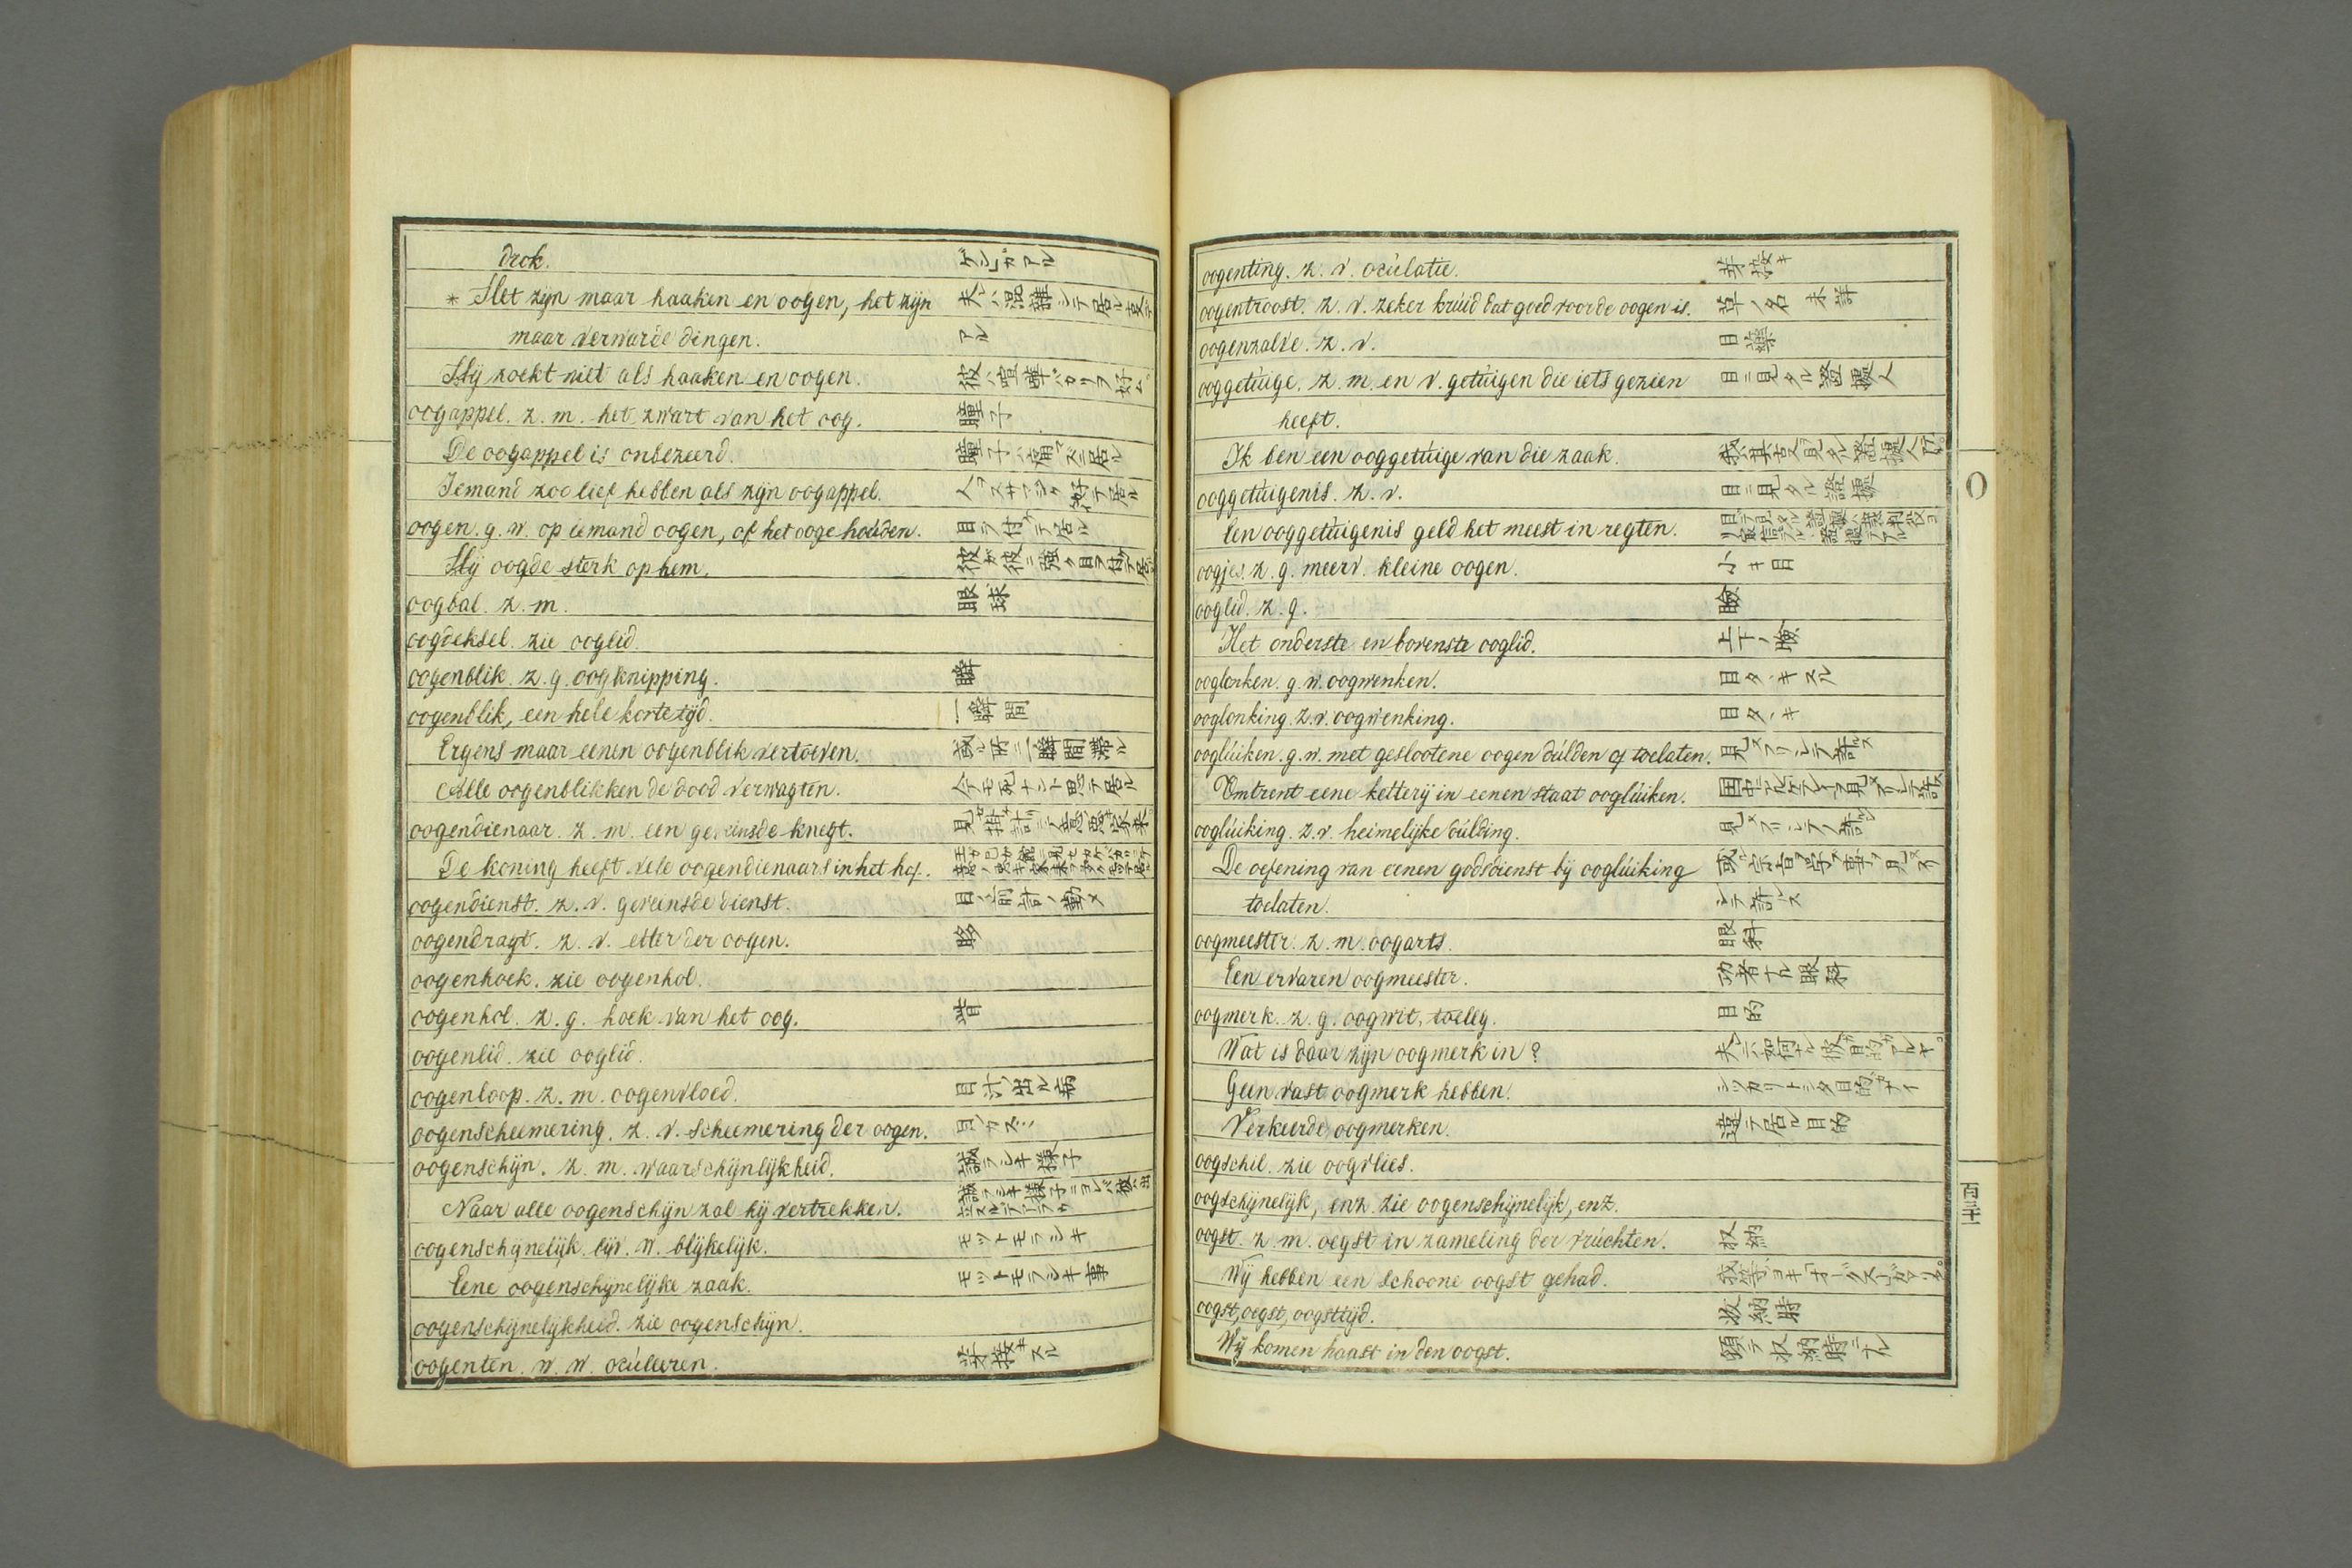 drok. ゲンガアル
* Het zyn maar haaken en oogen, het zyn 夫ハ混雑シテ居ル事デ
maar verwarde dingen. アル
Hÿ zoekt niet als haaken en oogen. 彼ハ喧嘩バカリヲ好ム
oogappel. z. m. het zwart van het oog. 瞳子
De oogappel is onbezeerd. 瞳子ハ痛マズニ居ル
Iemand zoo lief hebben als zÿn oogappel.
oogen. g. w. op iemand oogen, of het ooge houden. 目ヲ付ケテ居ル
Hÿ oogde sterk op hem. 彼ガ彼ニ強ク目ヲ付ケテ居タ
oogbal. z. m. 眼球
oogdeksel. zie ooglid.
oogenblik. z. g. oogknipping. 瞬
oogenblik, een hele korte tÿd. 一瞬間
Ergens maar eenen oogenblik vertoeven. 或ル所ニ一瞬間滞ル
Alle oogenblikken de dood verwagten. 今モ死ナント思テ居ル
oogendienaar. z. m. een geveinsde knegt.
De koning heeft vele oogendienaars in het hof.
oogendienst. z. v. geveinsde dienst. 目ノ前計ノ勤メ
oogendragt. z. v. etter der oogen. 眵
oogenhoek. zie oogenhol.
oogenhol. z. g. hoek van het oog. 眥
oogenlid. zie ooglid.
oogenloop. z. m. oogenvloed. 目汁ノ出ル病
oogenscheemering. z. v. scheemering der oogen. 目ノカスミ
oogenschÿn. z. m. waarschÿnlÿkheid. 誠ラシキ様子
Naar alle oogenschÿn zal hÿ vertrekken. 誠ラシキ様子ニヨレバ彼ハ出
oogenschÿnelÿk. bÿv. w. blÿkelÿk. モットモラシキ
Eene oogenschÿnelÿke zaak. モットモラシキ事
oogenschÿnelÿkheid. zie oogenschÿn.
oogenten. w. w. oculeeren. 芽接キスル
oogenting. z. v. oculatie. 芽接キ
oogentroost. z. v. zeker kruid dat goed voor de oogen is. 草ノ名 未詳
oogenzalve. z. v. 目薬
ooggetuige. z. m. en v. getuigen die iets gezien 目ニ見タル證據人
heeft.
Ik ben een ooggetuige van die zaak. 我ハ其事ヲ見タル證據人也。
ooggetuigenis. z. v. 目ニ見タル證據
Een ooggetuigenis geld het meest in regten.
oogjes. z. g. meerv. kleine oogen. 小キ目
ooglid. z. g. 瞼
Het onderste en bovenste ooglid. 上下ノ瞼
ooglonken. g. w. oogwenken. 目タヽキスル
ooglonking. z. v. oogwenking. 目タヽキ
oogluiken. g. w. met geslootene oogen dulden of toelaten. 見ヌフリシテ許ス
Omtrent eene ketterÿ in eenen staat oogluiken.
oogluiking. z. v. heimelÿke dulding. 見ヌフリシテノ許シ
De oefening van eenen godsdienst bÿ oogluiking 或ル宗旨ヲ学ブ事ヲ見ヌフリ
toelaten. シテ許ス
oogmeester. z. m. oogarts. 眼科
Een ervaren oogmeester. 功者ナル眼科
oogmerk. z. g. oogwit, toeleg. 目的
Wat is daar zÿn oogmerk in? 夫ニハ如何ナル彼ガ目的ガアルヤ。
Geen vast oogmerk hebben. シッカリトシタ目的ガナイ
Verkeerde oogmerken. 違テ居ル目的
oogschil. zie oogvlies.
oogschÿnelÿk, enz. zie oogenschÿnelÿk, enz.
oogst. z. m. oegst in zameling der vruchten. 収納
Wÿ hebben een schoone oogst gehad.
oogst, oegst, oogsttÿd. 収納時
Wÿ komen haast in den oogst. 頓テ収納時ニナル
O
百三十一